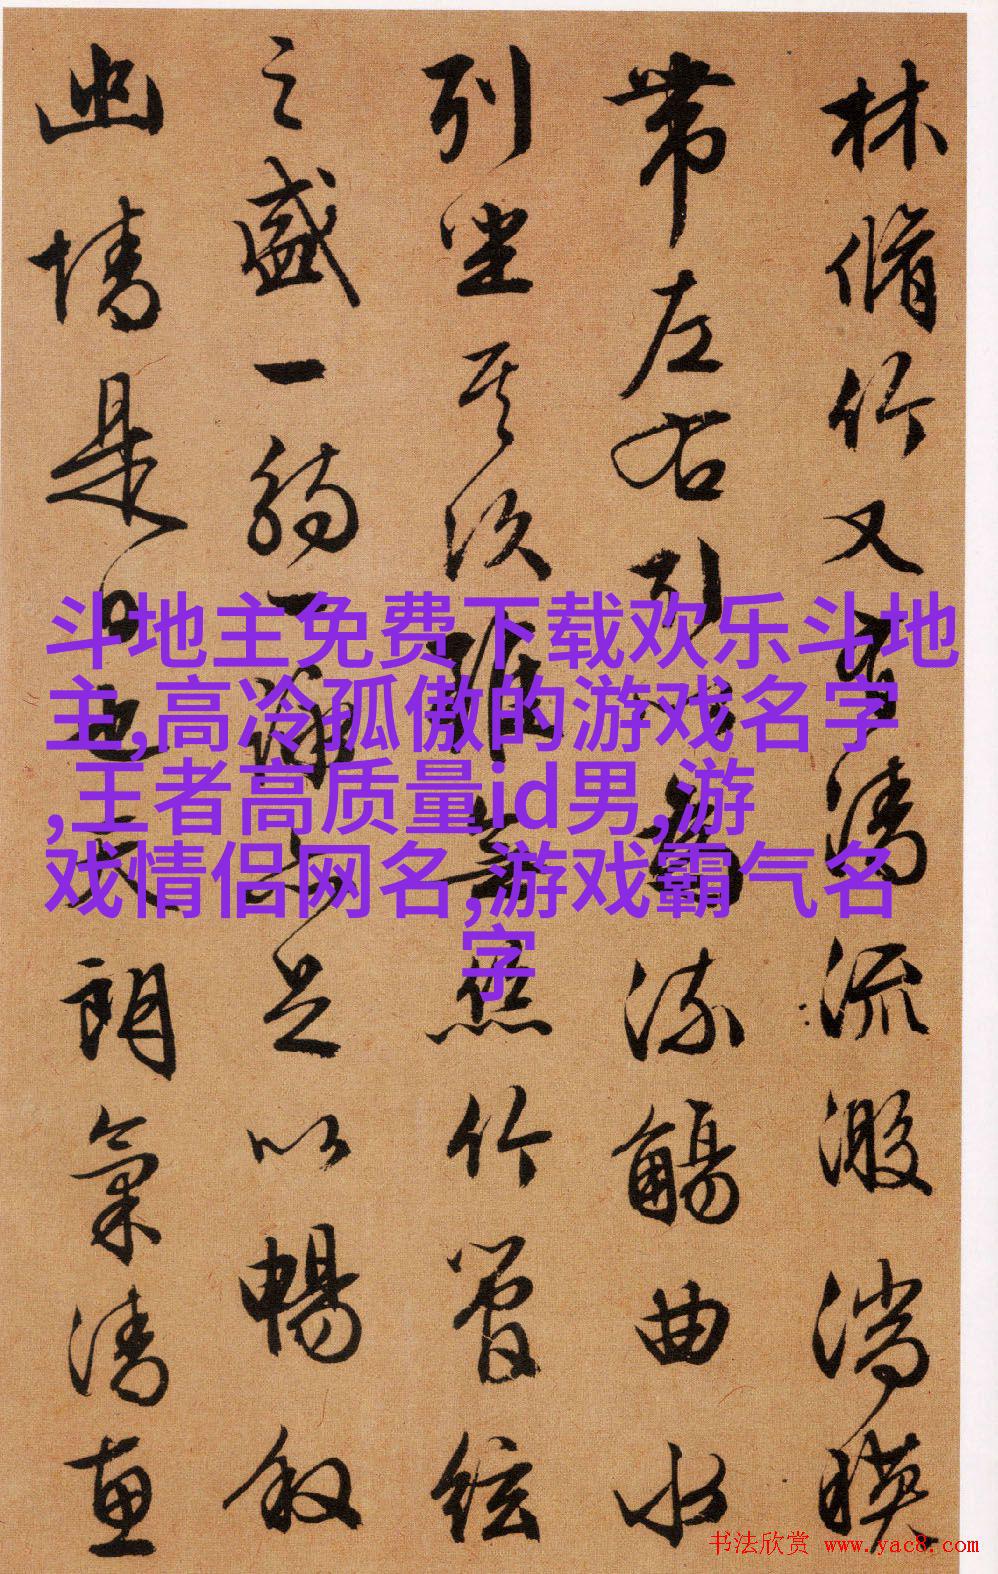 林脩竹又有清流激湍暎
帶左右引以為流觴曲水
列坐其次雖無絲竹管絃
之盛一觴一詠亦足以暢敘
幽情是日也天朗氣清惠
斗地主免费下载欢乐斗地
主,高冷孤傲的游戏名字
,王者高质量id男,游
戏情侣网名,游戏霸气名
字
书法欣赏 www.yac8.com